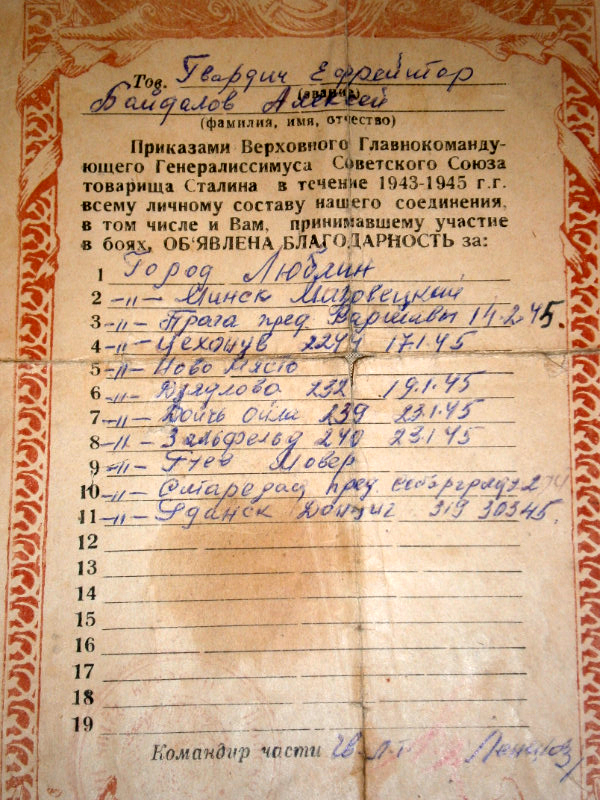 Тов. Гвардич Ефрейтор
(звание)
Байдалов Алексей
(фамилия, имя, отчество)
Приказами Верховного Главнокоманду-
ющего Генералиссимуса Советского Союза
товарища Сталина в течение 1943-1945 г.г.
всему личному составу нашего соединения,
в том числе и Вам, принимавшему участие
в боях, ОБ'ЯВЛЕНА БЛАГОДАРНОСТЬ за:
1 Город Люблин
2 -"- Минск Мазовецкий
3 -"- Прага пред Варшавы 14.2.45.
4 -"- Цеханув 224 17.1.45
5 -"- Ново Място
6 -"- Дзядлово 232 19.1.45
7 -"- Дойчь Ойла 239 23.1.45
8 -"- Зальфельд 240 23.1.45
9 -"- Гнев
10 -"- пред
11 -"- Гданск Данциг 319 30345.
12
13
14
15
16
17
18
19
Командир части Гв. Л-т